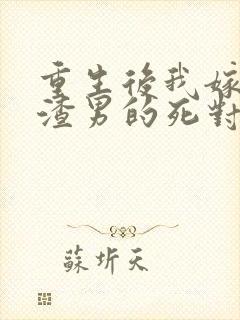 重生後我嫁
渣男的死對
蘇圻天